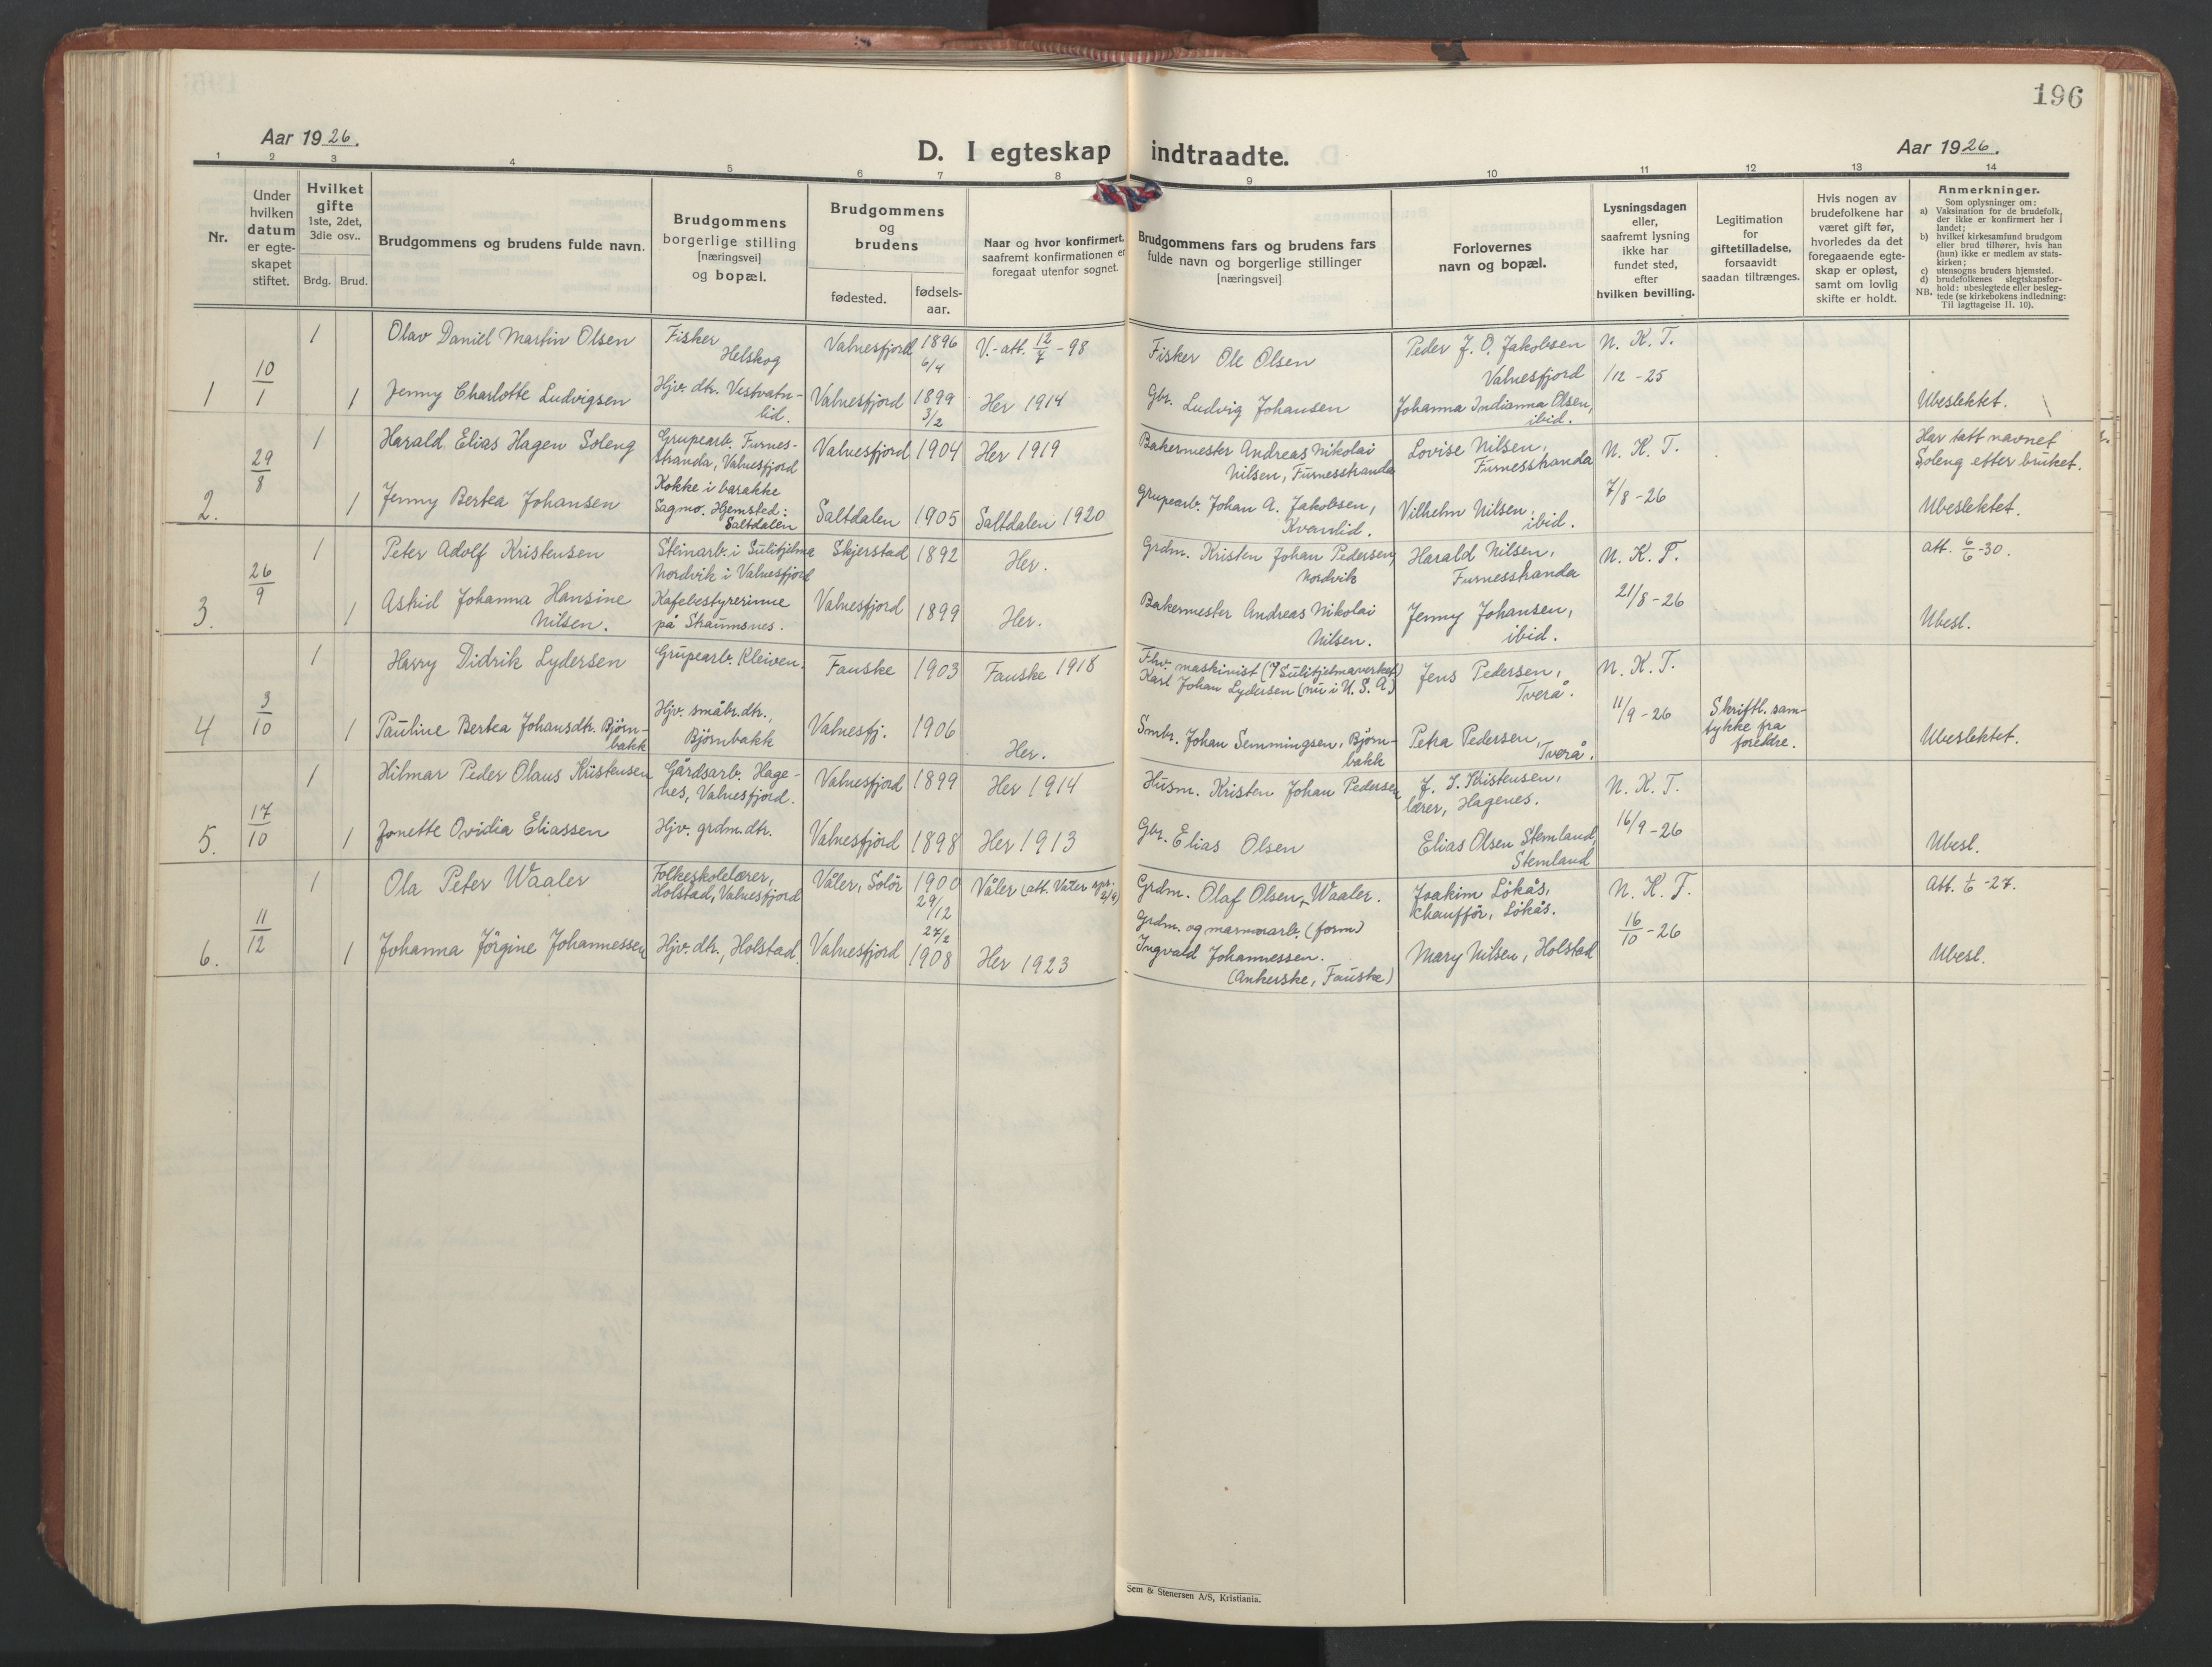 196
Aar 1926.
D. I egteskap indtraadte.
Aar 1926.
1 2 3 4 5 6 7 8 9 10 11 12 13 14
Nr.
Under
hvilken
datum
er egte-
skapet
stiftet.
Hvilket
gifte
1ste, 2det,
3die osv..
Brdg. Brud.
Brudgommens og brudens fulde navn.
Brudgommens
borgerlige stilling
[næringsvei]
og bopæl.
Brudgommens
og
brudens
fødested.
fødsels-
aar.
Naar og hvor konfirmert,
saafremt konfirmationen er
foregaat utenfor sognet.
Brudgommens fars og brudens fars
fulde navn og borgerlige stillinger
[næringsvei]
Forlovernes
navn og bopæl.
Lysningsdagen
eller,
saafremt lysning
ikke har
fundet sted,
efter
hvilken bevilling.
Legitimation
for
giftetilladelse,
forsaavidt
saadan tiltrænges.
Hvis nogen av
brudefolkene har
været gift før,
hvorledes da det
foregaaende egte-
skap er opløst,
samt om lovlig
skifte er holdt.
Anmerkninger.
Som oplysninger om:
a) Vaksination for de brudefolk,
der ikke er konfirmert her i
landet;
b) hvilket kirkesamfund brudgom
eller brud tilhører, hvis han
(hun) ikke er medlem av stats-
kirken;
c) utensogns bruders hjemsted.
d) brudefolkenes slegtskapsfor-
hold: ubeslegtede eller besleg-
NB. tede (se kirkebokens indledning:
Til iagttagelse II. 10).
1
10/1
1
Olav Daniel Martin Olsen
Fisker
Helskog
Valnesfjord
1896
6/4
V.-att. 12/7 - 98
Fisker Ole Olsen
Peder J. O. Jakobsen
Valnesfjord
N. K. T.
1/12 - 25
1
Jenny Charlotte Ludvigsen
Hjv. dtr. Vestvatn-
lid.
Valnesfjord
1899
3/2
Her 1914
Gbr. Ludvig Johansen
Johanna Indianna Olsen,
ibid.
Ubeslektet.
2.
29/8
1
Harald Elias Hagen Soleng
Grupearb. Furnes-
stranda, Valnesfjord
Valnesfjord
1904
Her 1919
Bakermester Andreas Nikolai
Nilsen, Furnesstranda
Lovise Nilsen,
Furnesstranda
N. K. T.
7/8 - 26
Har tatt navnet
Soleng etter bruket.
1
Jenny Bertea Johansen
Kokke i barakke
Sagmo. Hjemsted:
Saltdalen
Saltdalen
1905
Saltdalen 1920
Grupearb. Johan A. Jakobsen,
Kvanlid.
Vilhelm Nilsen,
ibid.
Ubeslektet.
3.
26/9
1
Peter Adolf Kristensen
Steinarb. i Sulitjelma
Nordvik i Valnesfjord
Skjerstad
1892
Her.
Grdm. Kristen Johan Pedersen,
Nordvik
Harald Nilsen,
Furnesstranda
N. K. T.
21/8 - 26
att. 6/6 - 30.
1
Astrid Johanna Hansine
Nilsen.
Kafebestyrerinne
på Straumsnes.
Valnesfjord
1899
Her.
Bakermester Andreas Nikolai
Nilsen.
Jenny Johansen,
ibid.
Ubesl.
4
3/10
1
Harry Didrik Lydersen
Grupearb. Kleiven.
Fauske
1903
Fauske 1918
Fhv. maskinist (v/ Sulitjelmaverket)
Karl Johan Lydersen (nu i U. S. A.)
Jens Pedersen,
Tverå.
N. K. T.
11/9 - 26
Skriftl. sam-
tykke fra
foreldre.
1
Pauline Bertea Johansdtr. Bjørn-
bakk
Hjv. småbr. dtr.,
Bjørnbakk
Valnesfj.
1906
Her.
Småbr. Johan Semmingsen, Bjørn-
bakk
Petra Pedersen,
Tverå.
Ubeslektet.
5.
17/10
1
Hilmar Peder Olaus Kristensen
Gårdsarb. Hage-
nes, Valnesfjord.
Valnesfjord
1899
Her 1914
Husm. Kristen Johan Pedersen
J. S. Kristensen,
lærer, Hagenes.
N. K. T.
16/9 - 26
1
Jonette Ovidia Eliassen
Hjv. grdm. dtr.
Valnesfjord
1898
Her 1913
Gbr. Elias Olsen
Elias Olsen Stemland,
Stemland
Ubesl.
6.
11/12
1
Ola Peter Waaler
Folkeskolelærer,
Holstad, Valnesfjord
Våler, Solör
1900
29/12
Våler (att. Våler spr. 2/4)
Grdm. Olaf Olsen Waaler.
Joakim Lökås,
chauffør, Lökås.
N. K. T.
16/10 - 26
Att. 1/6 - 27.
1
Johanna Jörgine Johannessen
Hjv. dtr., Holstad.
Valnesfjord
27/2
1908
Her 1923
Grdm. og marmorarb. (form)
Ingvald Johannessen.
(Ankerske, Fauske)
Mary Nilsen, Holstad
Ubesl.
Sem & Stenersen A/S, Kristiania.